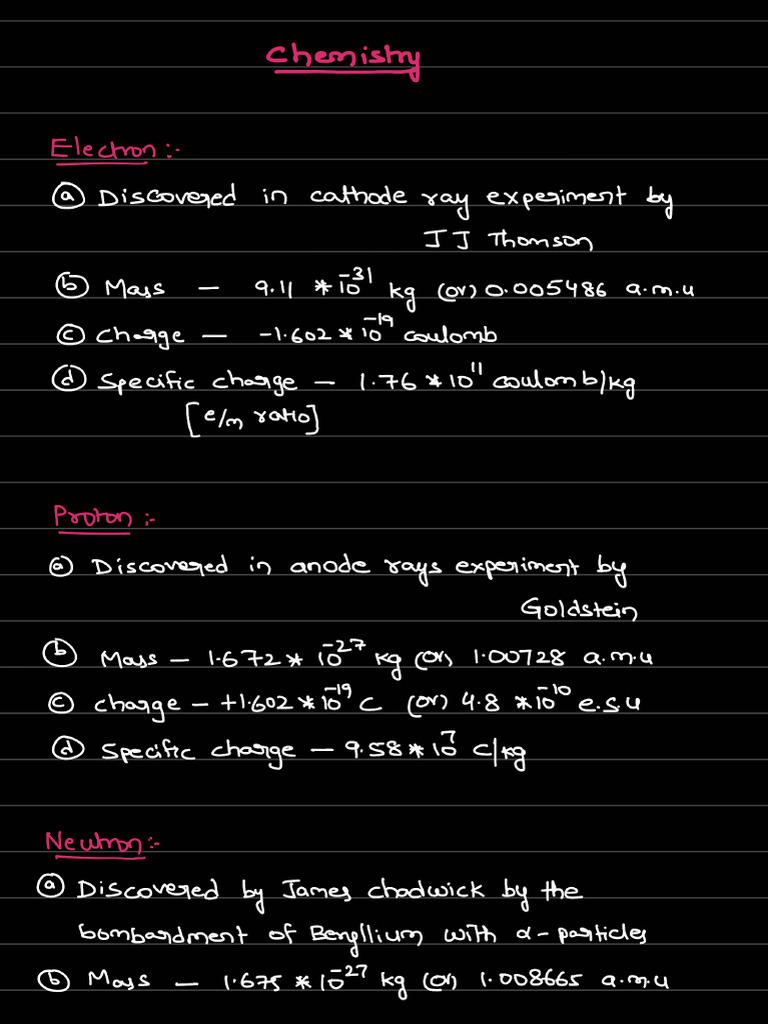 Chemistry
Electron :-
ⓐ Discovered in cathode ray experiment by
J J Thomson
ⓑ Mass — 9.11 * 10⁻³¹ kg (or) 0.005486 a.m.u
ⓒ charge — -1.602 * 10⁻¹⁹ coulomb
ⓓ Specific charge — 1.76 * 10¹¹ coulomb/kg
[e/m ratio]
Proton :-
ⓐ Discovered in anode rays experiment by
Goldstein
ⓑ Mass — 1.672 * 10⁻²⁷ kg (or) 1.00728 a.m.u
ⓒ charge — +1.602 * 10⁻¹⁹ C (or) 4.8 * 10⁻¹⁰ e.s.u
ⓓ Specific charge — 9.58 * 10⁷ C/kg
Neutron :-
ⓐ Discovered by James chadwick by the
bombardment of Beryllium with α - particles
ⓑ Mass — 1.675 * 10⁻²⁷ kg (or) 1.008665 a.m.u